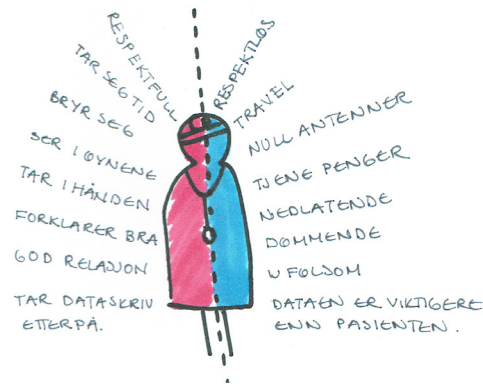 RESPEKTFULL
TAR SEG TID
BRYR SEG
SER I ØYNENE
TAR I HÅNDEN
FORKLARER BRA
GOD RELASJON
TAR DATASKRIV
ETTERPÅ.
RESPEKTLØS
TRAVEL
NULL ANTENNER
TJENE PENGER
NEDLATENDE
DØMMENDE
UFØLSOM
DATAEN ER VIKTIGERE
ENN PASIENTEN.